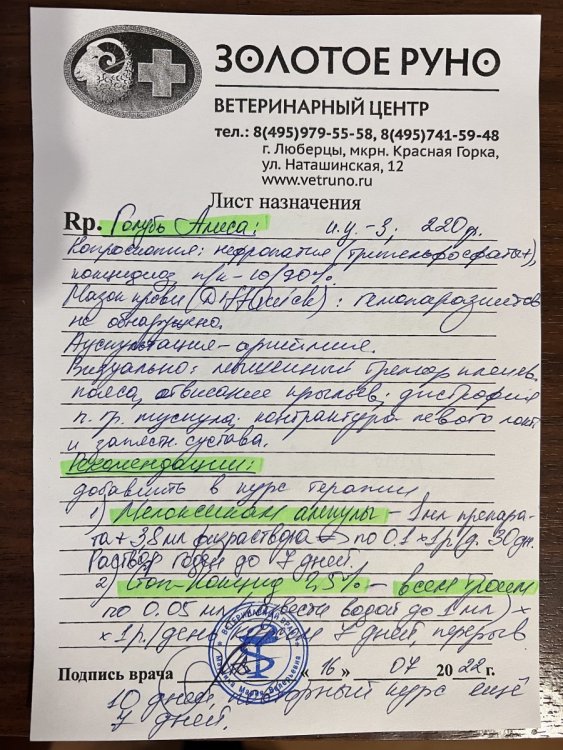 ЗОЛОТОЕ РУНО
ВЕТЕРИНАРНЫЙ ЦЕНТР
тел.: 8(495)979-55-58, 8(495)741-59-48
г. Люберцы, мкрн. Красная Горка,
ул. Наташинская, 12
www.vetruno.ru
Лист назначения
Rp. Голубь Алиса: и.у.-3; 220гр.
Копроскопия: нефропатия (трипельфосфаты+),
кокцидиоз п/к - 10/90%.
Мазок крови : гемопаразитов
не обнаружено.
Аускультация - аритмия.
Визуально: тремор плечев.
пояса, отвисание крыльев; дистрофия
п. гр. мускула; контрактура левого локт.
и запястн. сустава.
Рекомендации:
добавить в курс терапии
1) Мелоксикам ампулы - 1мл препара-
та + 38мл физраствора по 0.1 х 1р/д. 30дн.
Раствор годен до 7 дней.
2) Стоп-Кокцид 2,5% - всем троем
по 0.05 мл (развести водой до 1 мл) х
х 1р/день 7 дней, перерыв
Подпись врача « 16 » 07 20 22 г.
10 дней, повторный курс ещё
7 дней.